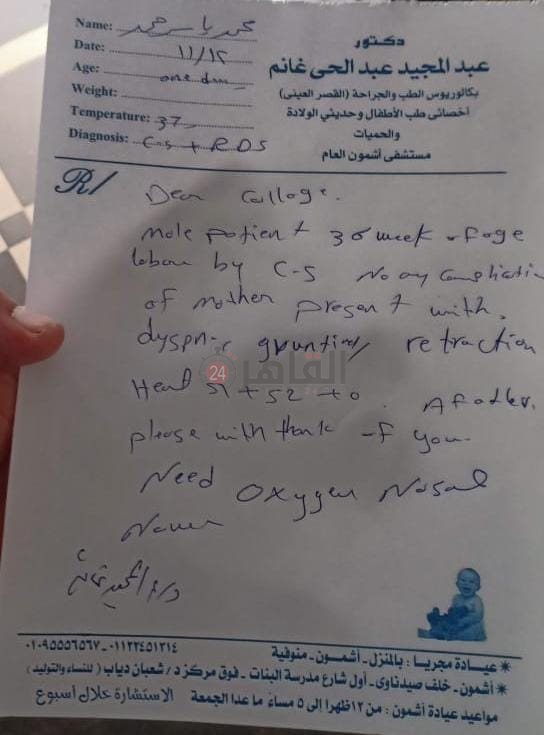 Name: محمد ياسر محمد
Date: ١١/١٢
Age: one day
Weight:
Temperature: 37
Diagnosis: C-S + RDS
دكتور
عبد المجيد عبد الحى غانم
بكالوريوس الطب والجراحة (القصر العينى)
أخصائى طب الأطفال وحديثي الولادة
والحميات
مستشفى أشمون العام
R/
Dear Colloge.
male patient 36 week of age
labour by C-S No any complication
of mother present with.
dyspnic grunting retraction
Heart S1 + S2 + 0
please with thank of you.
Need Oxygen Nasal
القاهرة 24
* عيادة مجريا : بالمنزل - أشمون - منوفية ٠١١٢٢٤٥١٢١٤ - ٠١٠٩٥٥٥٦٥٦٧
* أشمون - خلف صيدناوى - أول شارع مدرسة البنات - فوق مركز د / شعبان دياب ( للنساء والتوليد )
مواعيد عيادة أشمون : من ١٢ ظهرا إلى ٥ مساءً ما عدا الجمعة الاستشارة خلال أسبوع